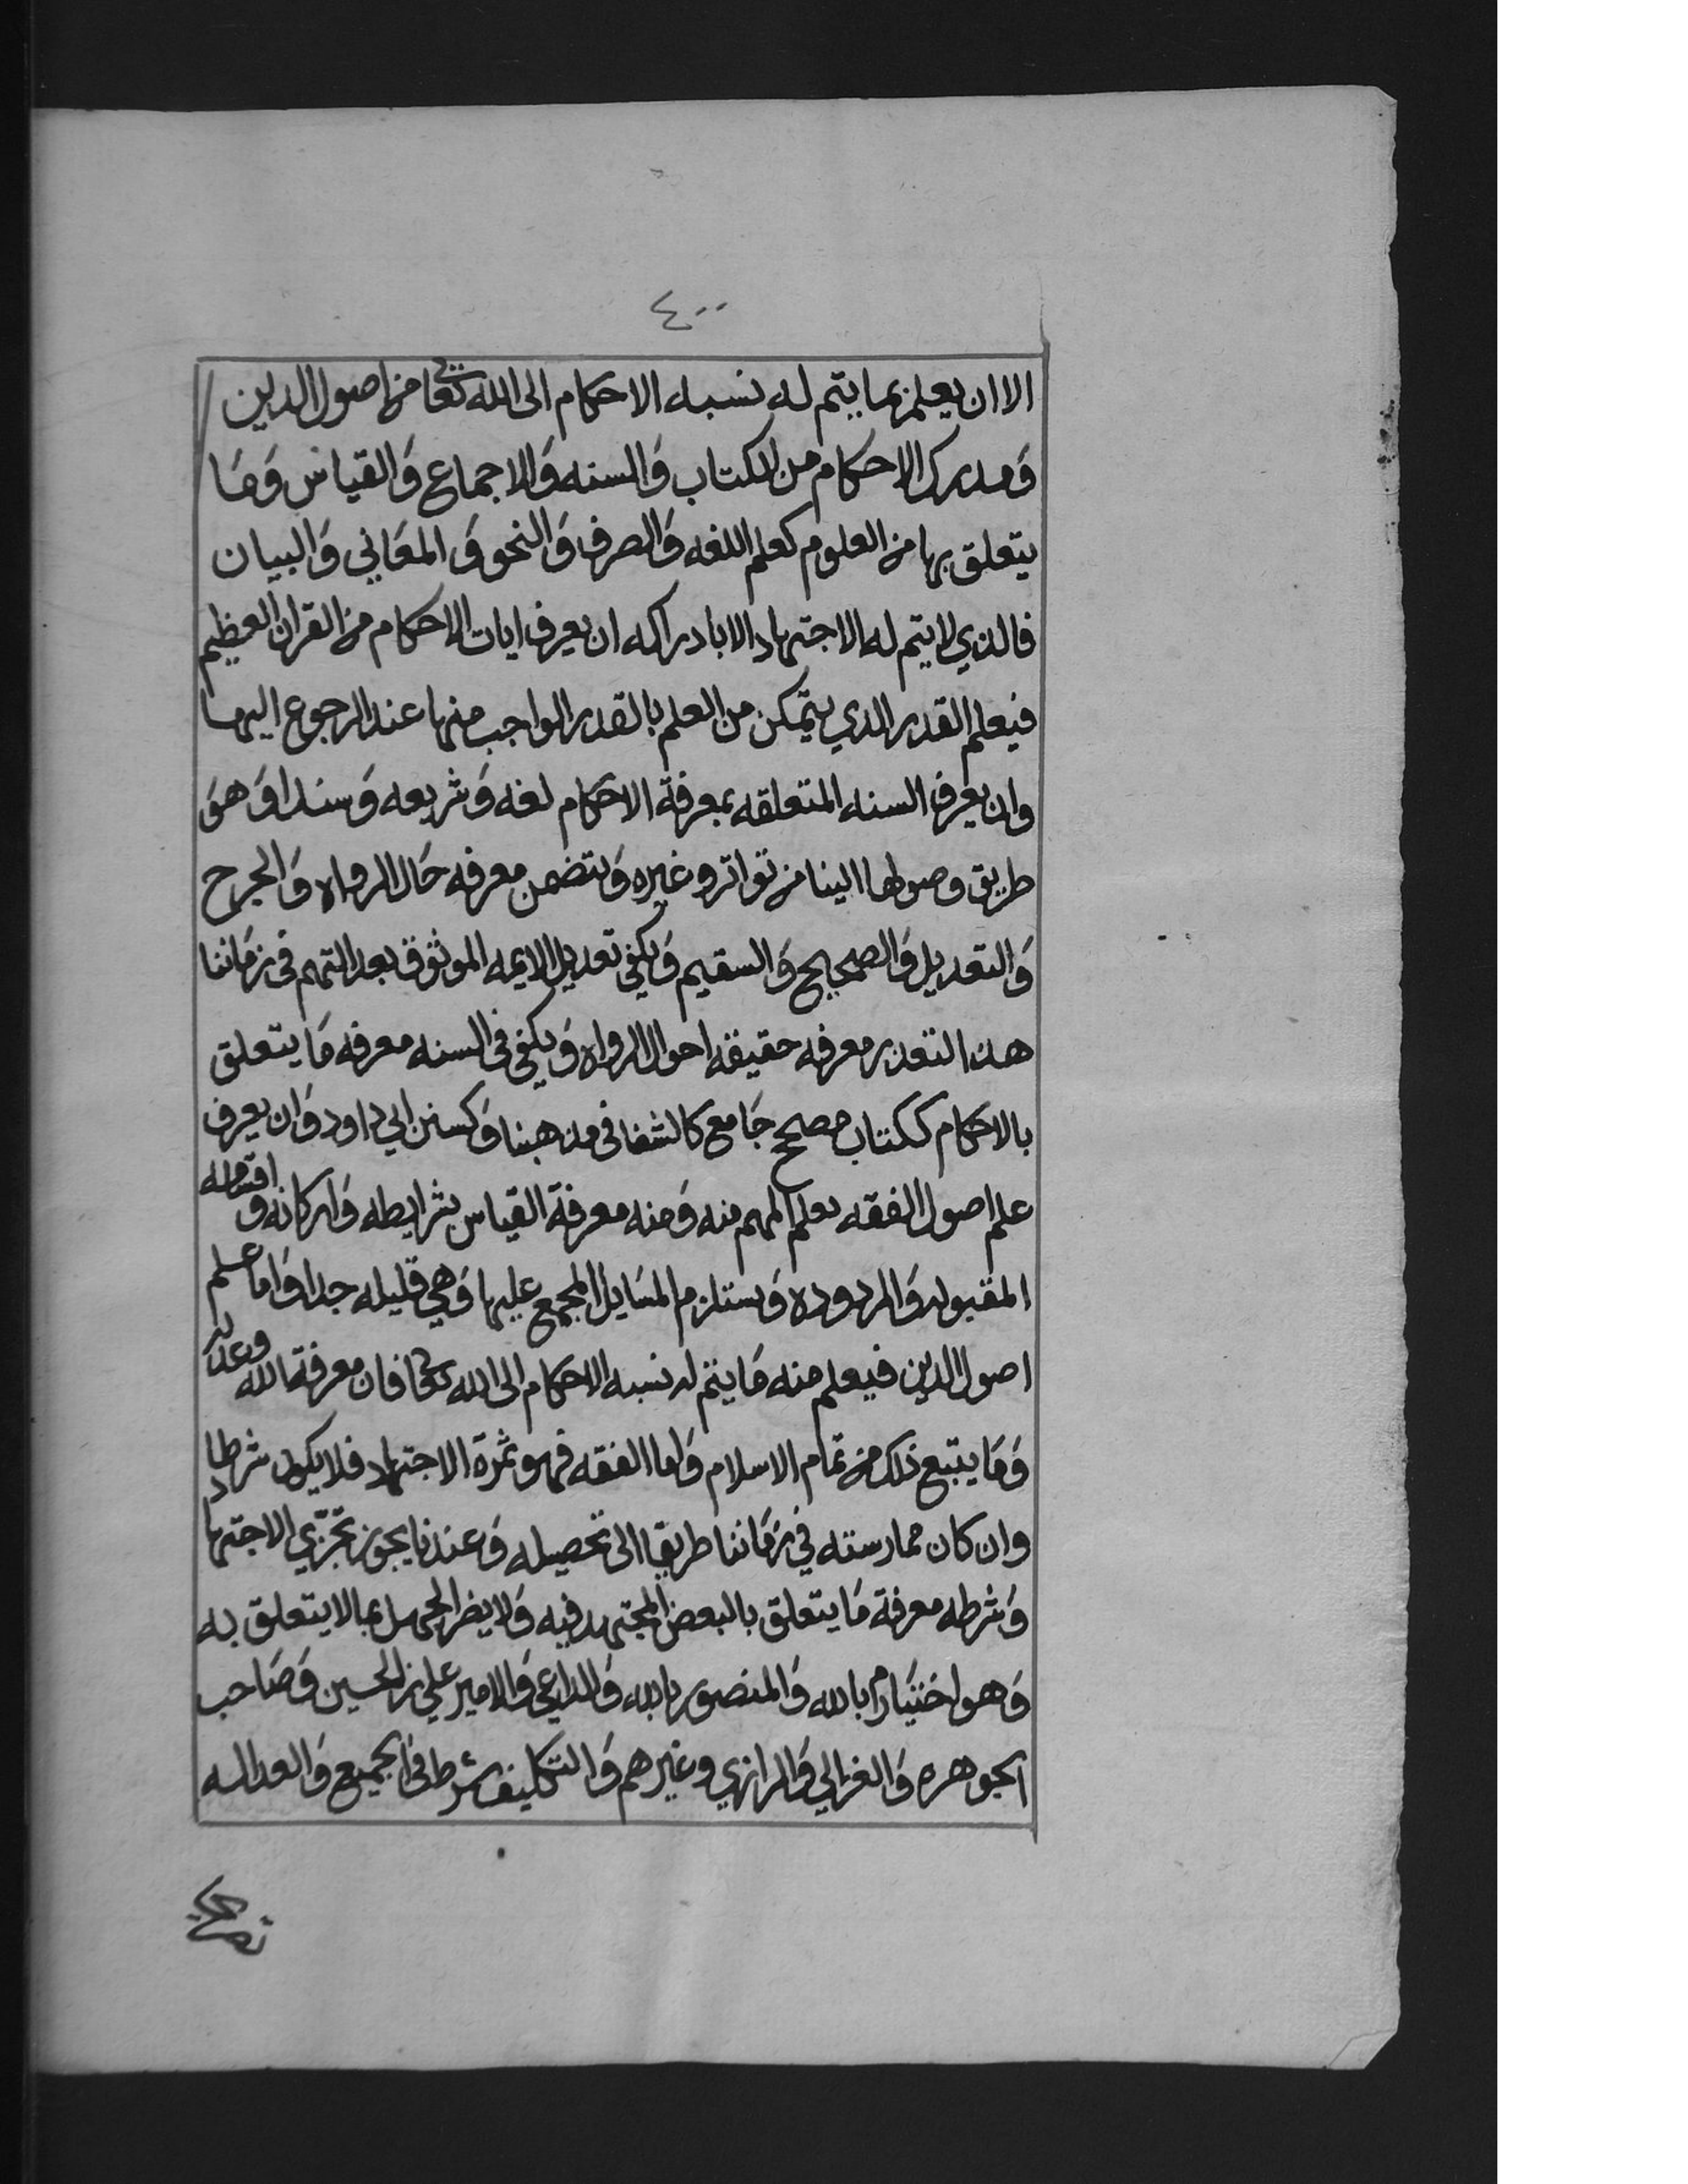 ٤٠٠
الا ان يعلم بما يتم له نسبه الاحكام الى الله تعا من اصول الدين
ومدرك الاحكام من الكتاب والسنه والاجماع والقياس وما
يتعلق بها من العلوم كعلم اللغه والصرف والنحو والمعاني والبيان
فالذي لا يتم له الاجتهاد الا بادراكه ان يعرف ايات الاحكام من القران العظيم
فيعلم القدر الذي يتمكن من العلم بالقدر الواجب منها عند الرجوع اليها
وان يعرف السنه المتعلقه بمعرفة الاحكام لغه وشريعه وسندا وهو
طريق وصولها الينا من تواتر وغيره ويتضمن معرفه حال الرواه والجرح
والتعديل والصحيح والسقيم ويكفي تعديل الايمه الموثوق بعدالتهم في زماننا
هذا لتعذر معرفه حقيقه احوال الرواه ويكفي في السنه معرفه ما يتعلق
بالاحكام ككتاب مصحح جامع كالشفا في مذهبنا وكسنن ابي داود وان يعرف
علم اصول الفقه يعلم المهم منه ومنه معرفة القياس بشرايطه واركانه و اقسامه
المقبوله والمردوده ويستلزم المسايل المجمع عليها وهي قليله جدا واما علم
اصول الدين فيعلم منه ما يتم له نسبه الاحكام الى الله تعا فان معرفة الله وعدله
وما يتبع ذلك من تمام الاسلام واما الفقه فهو ثمرة الاجتهاد فلا يكون شرطا
وان كان ممارسته في زماننا طريقا الى تحصيله وعندنا يجوز تجزي الاجتهاد
وشرطه معرفة ما يتعلق بالبعض المجتهد فيه ولا يضر الجهل بما لا يتعلق به
وهو اختيار م بالله والمنصور بالله والداعي والامير علي بن الحسين وصاحب
الجوهره والغزالي والرازي وغيرهم والتكليف شرط في الجميع والعداله